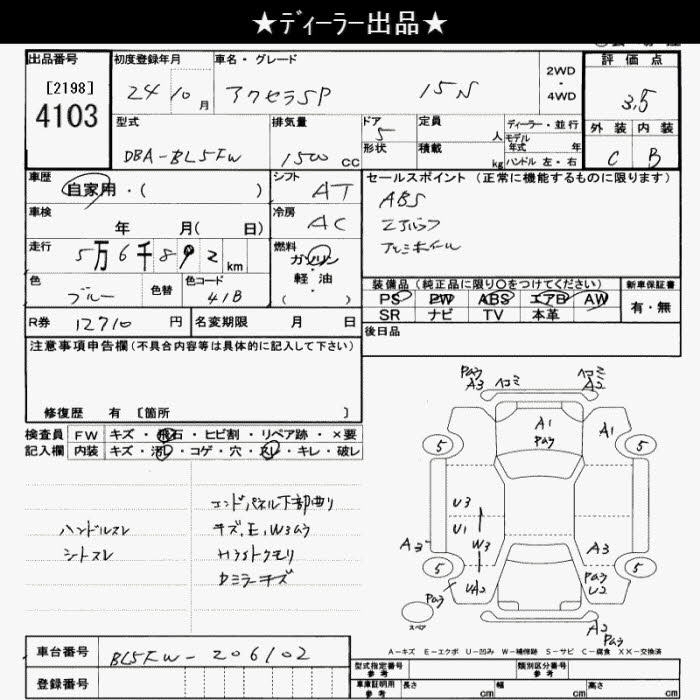 ★ディーラー出品★
出品番号
[2198]
4103
初度登録年月
24 10 月
車名・グレード
アクセラSP 15N
2WD
・
4WD
評価点
3.5
外装 内装
C B
型式
DBA-BL5FW
排気量
1500 cc
ドア
5
形状
定員
人
積載
kg
ディーラー・並行
モデル
年式 年
ハンドル 左・右
車歴
自家用・( )
シフト
AT
車検
年 月( 日)
冷房
AC
走行
5万6千892 km
燃料
ガソリン
・
軽油
( )
色
ブルー
色替
色コード
41B
R券 12710 円
名変期限 月 日
セールスポイント(正常に機能するものに限ります)
ABS
エアバッグ
アルミホイール
装備品(純正品に限り○をつけてください)
PS PW ABS エアB AW
SR ナビ TV 本革
新車保証書
有・無
後日品
注意事項申告欄(不具合内容等は具体的に記入して下さい)
修復歴 有 [箇所 ]
検査員 FW キズ・飛石・ヒビ割・リペア跡・×要
記入欄 内装 キズ・汚レ・コゲ・穴・スレ・キレ・破レ
エンドパネル下部曲り
ハンドルスレ
シートスレ
キズ.E.W3ムラ
Hライトクモリ
ミラーキズ
A3 ヘコミ
ヘコミ A2
A1
A1
5 5
U3
U1
W3
A3
A3
5 5
UA2
U2
スペア
A2
A-キズ E-エクボ U-凹み W-補修跡 S-サビ C-腐食 XX-交換済
車台番号 BL5FW-206102
登録番号
型式指定番号
参考
類別区分番号
参考
車庫証明用
参考
長さ cm
幅 cm
高さ cm